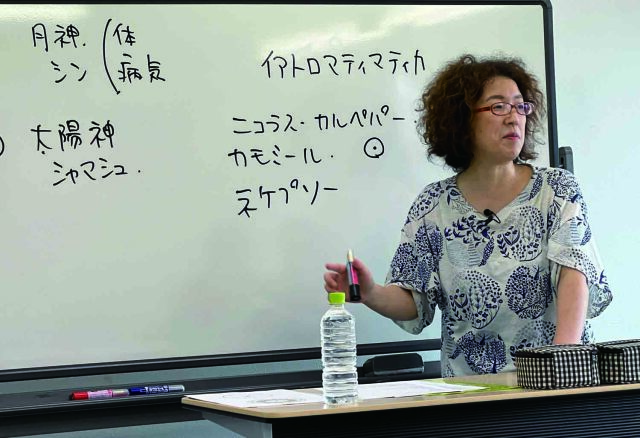 月神. (体
シン 病気
太陽神
シャマシュ.
イアトロマティマティカ
ニコラス・カルペパー
カモミール. ☉
ネケプソー